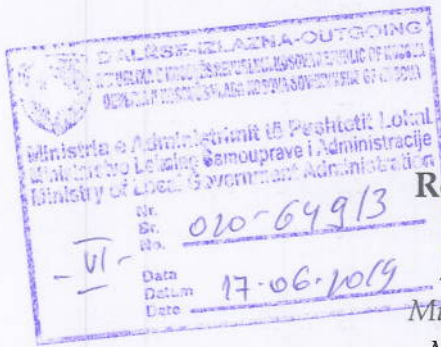 DALESE-IZLAZNA-OUTGOING
Ministria e Administrimit të Pushtetit Lokal
Ministarstvo Lokalne Samouprave i Administracije
Ministry of Local Government Administration
R
Nr.
Br.
No.
020-649/3
- VI -
Data
Datum
Date
17-06-2019
Mi